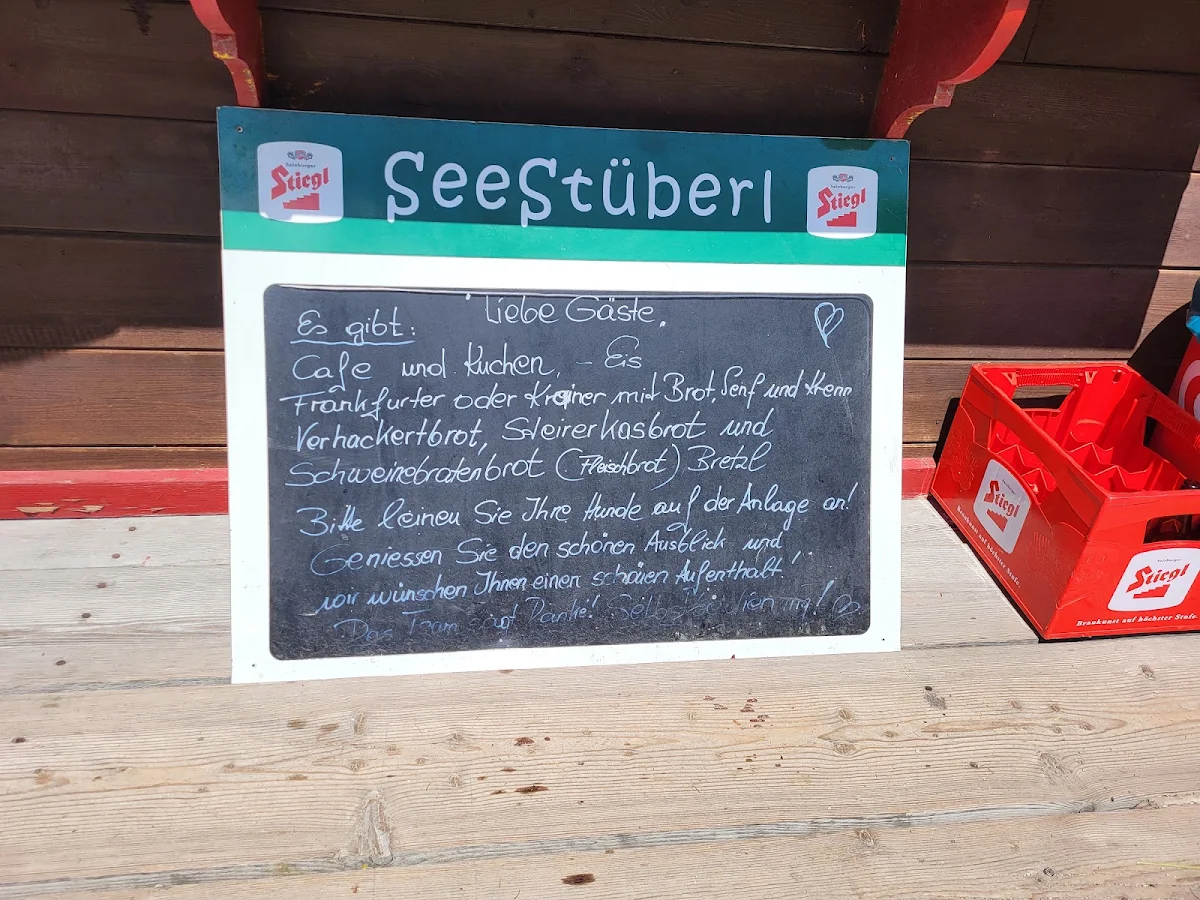 Salzburger
Stiegl
SeeStüberl
Salzburger
Stiegl
Liebe Gäste,
Es gibt:
Cafe und Kuchen, - Eis
Frankfurter oder Krainer mit Brot, Senf und Krenn
Verhackertbrot, Steirerkasbrot und
Schweinebratenbrot (Fleischbrot) Bretzl
Bitte leinen Sie Ihre Hunde auf der Anlage an!
Geniessen Sie den schönen Ausblick und
wir wünschen Ihnen einen schönen Aufenthalt!
Das Team sagt Danke! Selbstbedienung!
Salzburger
Stiegl
Braukunst auf höchster Stufe.
Salzburger
Stiegl
Braukunst auf höchster Stufe.